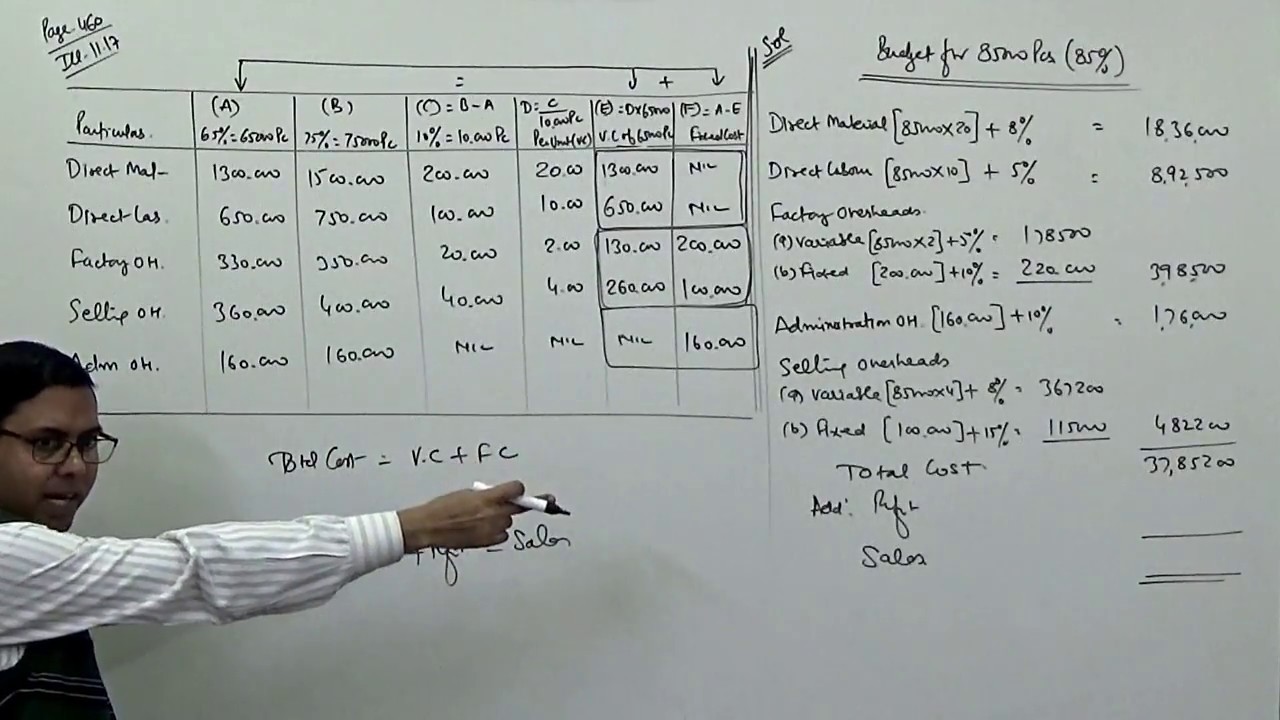 Page. 460
Ill. 11.17
= +
Particulars. (A) 65%=65000Pc (B) 75%=75000Pc (C)=B-A 10%=10,000Pc D=C/10,000Pc Per Unit(VC) (E)=D×65000 V.C of 65000Pc (F)=A-E Fixed Cost
Direct Mat- 1300.000 1500.000 200.000 20.00 1300.000 NIL
Direct Lab. 650.000 750.000 100.000 10.00 650.000 NIL
Factory OH. 330.000 350.000 20.000 2.00 130.000 200.000
Selling OH. 360.000 400.000 40.000 4.00 260.000 100.000
Adm OH. 160.000 160.000 NIL NIL NIL 160.000
Total Cost = V.C + F C
= Sales
Sol
Budget for 85000 Pcs (85%)
Direct Material [85000×20] + 8% = 18,36,000
Direct Labour [85000×10] + 5% = 8,92,500
Factory Overheads.
(a) Variable [85000×2]+5% = 178500
(b) Fixed [200.000]+10% = 220.000 398500
Administration OH. [160,000]+10% = 1,76,000
Selling Overheads
(a) Variable [85000×4]+ 8% = 367200
(b) Fixed [100.000]+15% = 115000 482200
Total Cost. 37,85200
Add: Profit
Sales